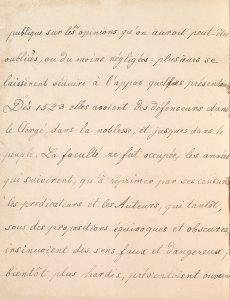 publique sur les opinions qu'on auroit peut-être
oubliées, ou du moins négligées: plusieurs se
laissèrent séduire à l'appas qu'elles présentoient.
Dès 1523 elles avoient des défenseurs dans
le Clergé, dans la noblesse, et jusques dans le
peuple. La faculté ne fut occupée, les années
qui suivirent, qu'à réprimer par ses censures
les prédicateurs et les Auteurs, qui tantot,
sous des propositions équivoques et obscures
insinuoient des sens faux et dangereux;
bientôt plus hardis, présentoient